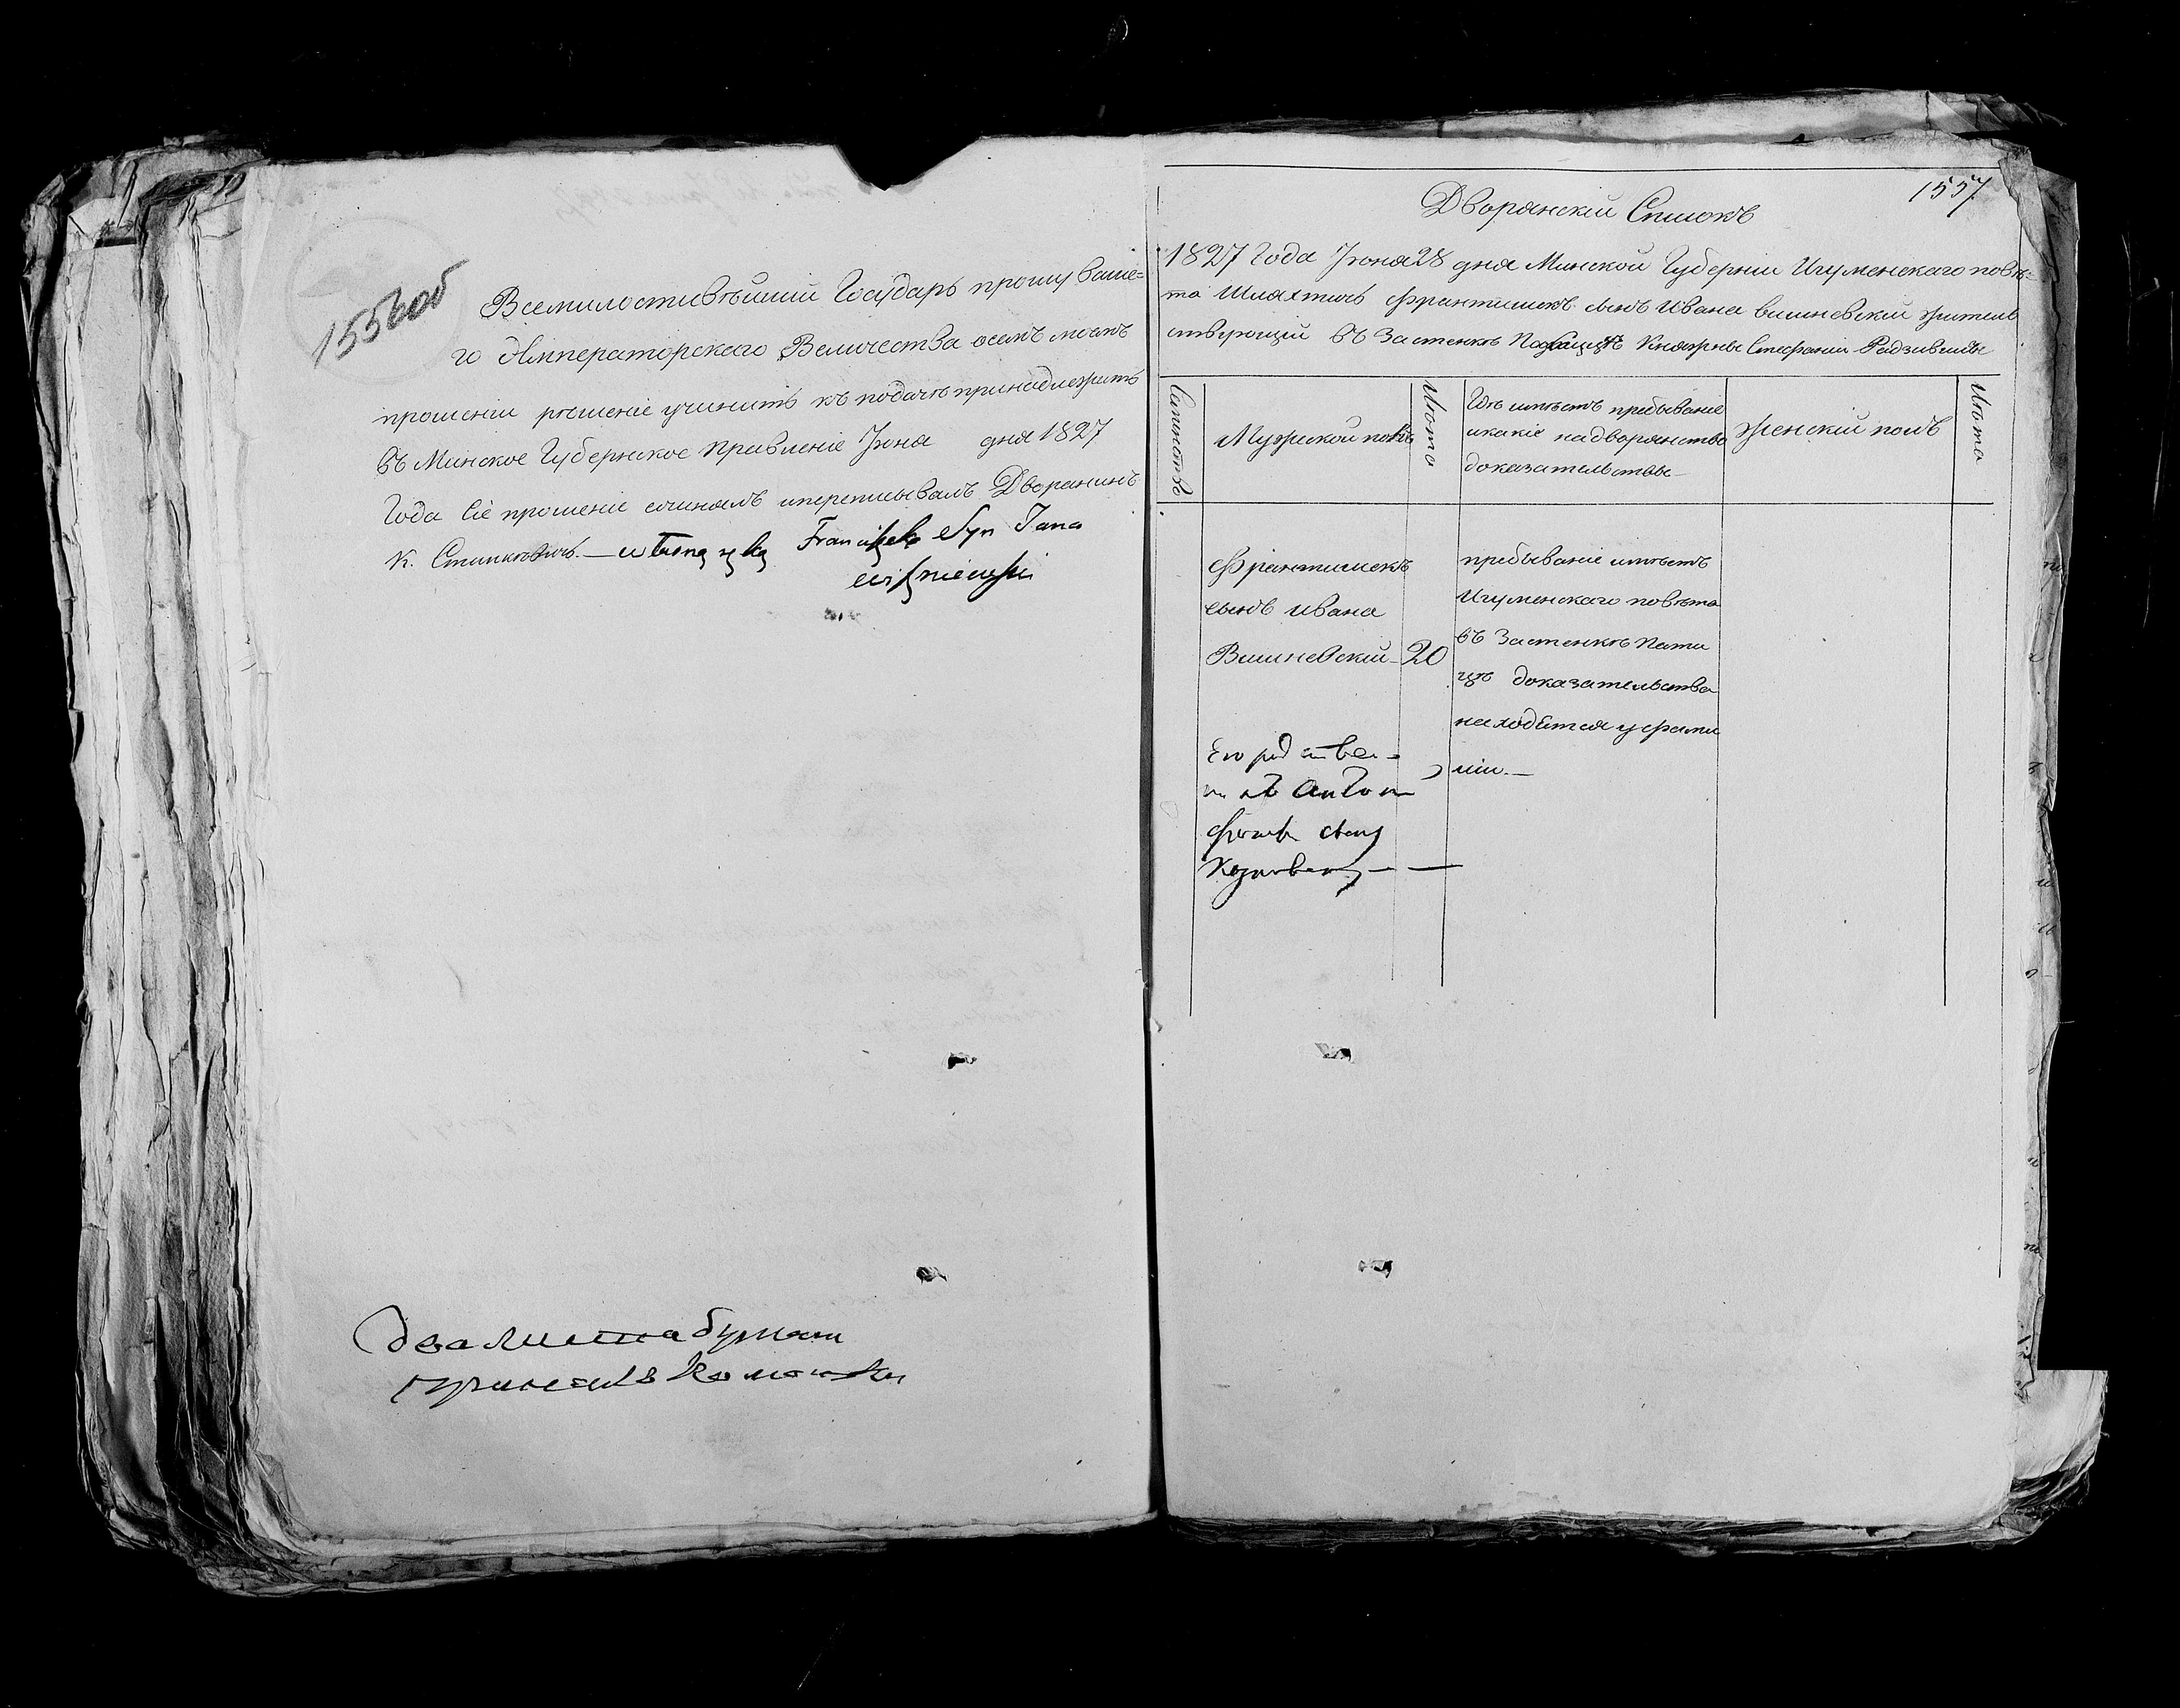 1556об
Всемилостивѣйшій Государь прошу ваше=
го Императорскаго Величества осемъ моемъ
прошеніи рѣшеніе учинить къ подачѣ принадлежитъ
въ Минское Губернское Правленіе Іюня дня 1827
Года Сіе прошеніе сочинялъ и переписывалъ Дворянинъ
К. Franciszek Syn Jana
два листа бумаги
1557
Дворянскій Списокъ
1827 Года Іюня 28 дня Минской Губерніи Игуменскаго повѣ=
та Шляхтичъ Франтишекъ сынъ Ивана вишневскій житель
ствующій въ Застенкѣ Княжны Стефаніи Радзивилъ
Семинство
Мужской полъ
Лѣта
Гдѣ имѣетъ пребываніе
икакіе надворянство
доказательствы
Женскій полъ
Лѣта
Франтишекъ
сынъ Ивана
Вишневскій 20
пребываніе имѣетъ
Игуменскаго повѣта
въ Застенкѣ Пати
цѣ доказательства
находятся уфами
ліи.
Его родствен-